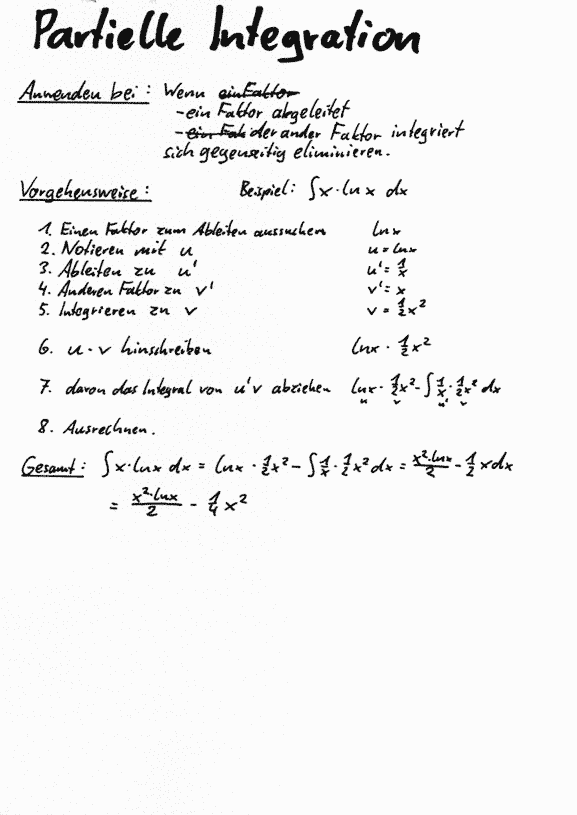 Partielle Integration
Anwenden bei: Wenn ein Faktor
- ein Faktor abgeleitet
- ein Fak der ander Faktor integriert
sich gegenseitig eliminieren.
Vorgehensweise: Beispiel: ∫x·ln x dx
1. Einen Faktor zum Ableiten aussuchen ln x
2. Notieren mit u u = ln x
3. Ableiten zu u' u' = 1/x
4. Anderen Faktor zu v' v' = x
5. Integrieren zu v v = 1/2 x²
6. u·v hinschreiben ln x · 1/2 x²
7. davon das Integral von u'v abziehen ln x · 1/2 x² - ∫ 1/x · 1/2 x² dx
u v u' v
8. Ausrechnen.
Gesamt: ∫x·ln x dx = ln x · 1/2 x² - ∫ 1/x · 1/2 x² dx = x²·ln x/2 - 1/2 x dx
= x²·ln x/2 - 1/4 x²